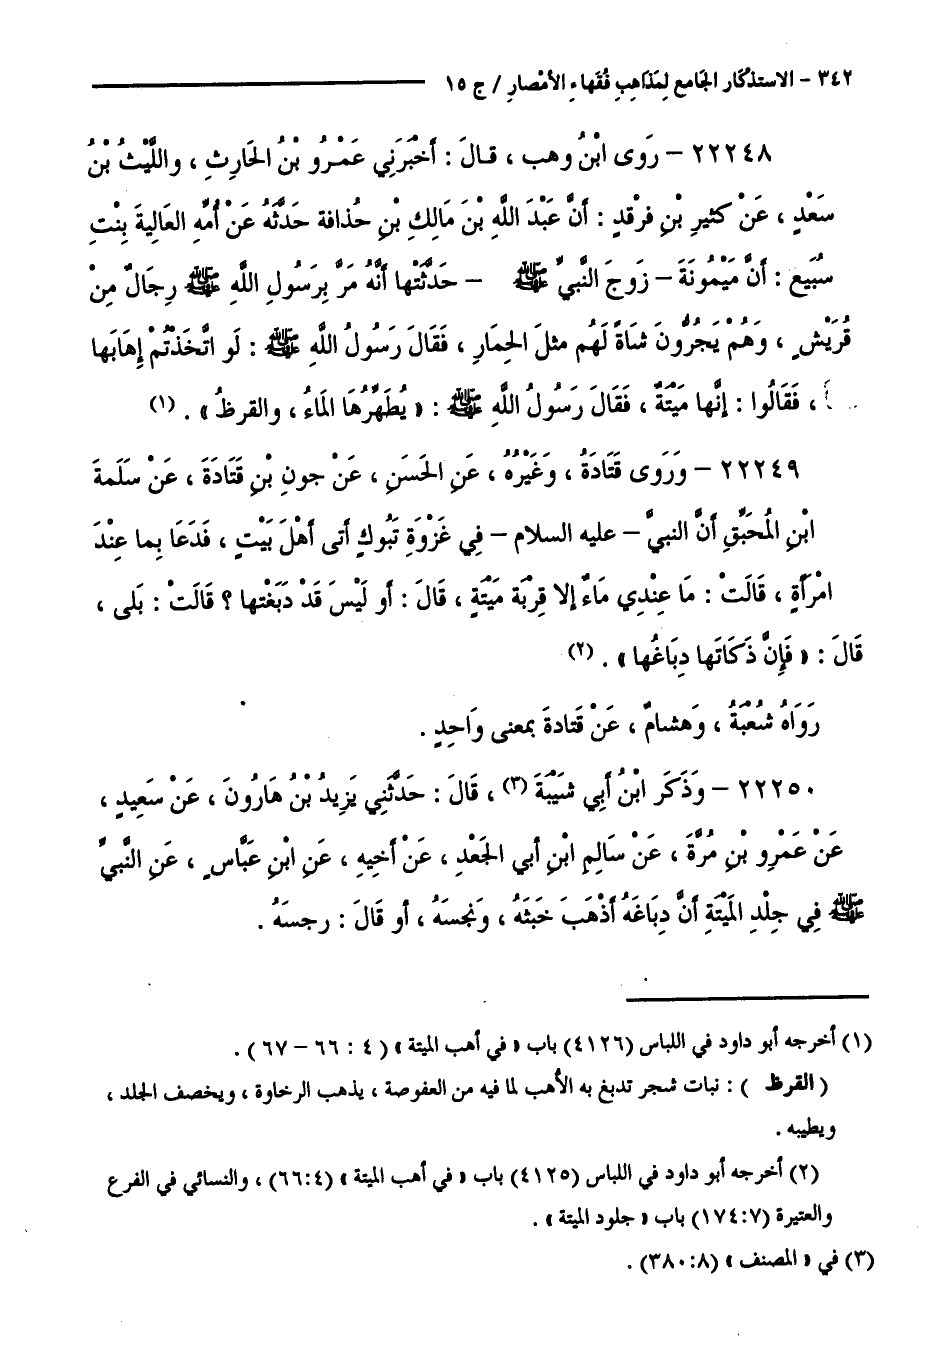 ٣٤٢ - الاستذْكَار الجَامع لِمَذَاهِبِ فُقَهاءِ الأمْصار / ج ١٥
٢٢٢٤٨ - رَوى ابْنُ وهب ، قـالَ : أخْبَرَنِي عَمْـرُو بْنُ الحَارِثِ ، واللَّيْثُ بْنُ
سَعْدٍ ، عَنْ كثيرِ بْنِ فرْقدٍ : أنَّ عَبْدَ اللَّهِ بْنَ مَالِكِ بْنِ حُذافة حَدَّثَهُ عَنْ أُمِّهِ العَالِيةَ بِنْتِ
سُبَيع : أنَّ مَيْمُونَةَ - زَوجَ النَّبيِّ ﷺ - حَدَّثَتْها أنَّهُ مَرَّ بِرَسُولِ اللَّهِ ﷺ رِجَالٌ مِنْ
قُرَيْشٍ ، وَهُمْ يَجرُّونَ شاةً لَهُم مثلَ الحِمَارِ ، فَقَالَ رَسُولُ اللَّهِ ﷺ : لَو اتَّخَذْتُمْ إِهَابَها
، فَقَالُوا : إنَّها مَيْتَةٌ ، فَقَالَ رَسُولُ اللَّهِ ﷺ : « يُطَهِّرُهَا المَاءُ ، والقرظُ » . (١)
٢٢٢٤٩ - وَرَوى قَتَادَةُ ، وَغَيْرُهُ ، عَنِ الحَسَنِ ، عَنْ جونِ بْنِ قَتَادَةَ ، عَنْ سَلَمةَ
ابْنِ المُحَبَّقِ أنَّ النبيَّ - عليه السلام - فِي غَزْوَةِ تَبُوكٍ أتى أهْلَ بَيْتٍ ، فَدَعَا بِما عِنْدَ
امْرَأةٍ ، قَالَتْ : مَا عِنْدِي مَاءٌ إلا قِرْبَة مَيْتَةٍ ، قَالَ : أو لَيْسَ قَدْ دَبَغْتها ؟ قَالَتْ : بَلى ،
قَالَ : « فَإِنَّ ذَكَاتَها دِبَاغُها » . (٢)
رَوَاهُ شُعْبَةُ ، وَهشامٌ ، عَنْ قَتادةَ بمعنى وَاحِدٍ .
٢٢٢٥٠ - وَذَكَر ابْنُ أبِي شَيْبَةَ (٣) ، قَالَ : حَدَّثَنِي يَزِيدُ بْنُ هَارُونَ ، عَنْ سَعِيدٍ ،
عَنْ عَمْرِو بْنِ مُرَّةَ ، عَنْ سَالِمِ ابْنِ أبي الجَعْدِ ، عَنْ أخيهِ ، عَنِ ابْنِ عَبَّاسٍ ، عَنِ النَّبيِّ
ﷺ فِي جِلْدِ المَيْتَةِ أنَّ دِبَاغَهُ أذْهَبَ خَبَثَهُ ، وَنَجسَهُ ، أو قَالَ : رجسَهُ .
(١) أخرجه أبو داود في اللباس (٤١٢٦) باب « في أهب الميتة » (٤ : ٦٦ - ٦٧) .
( القرظ ) : نبات شجر تدبغ به الأهب لما فيه من العفوصة ، يذهب الرخاوة ، ويخصف الجلد ،
ويطيبه .
(٢) أخرجه أبو داود في اللباس (٤١٢٥) باب « في أهب الميتة » (٤:٦٦) ، والنسائي في الفرع
والعتيرة (٧:١٧٤) باب « جلود الميتة » .
(٣) في « المصنف » (٨:٣٨٠) .